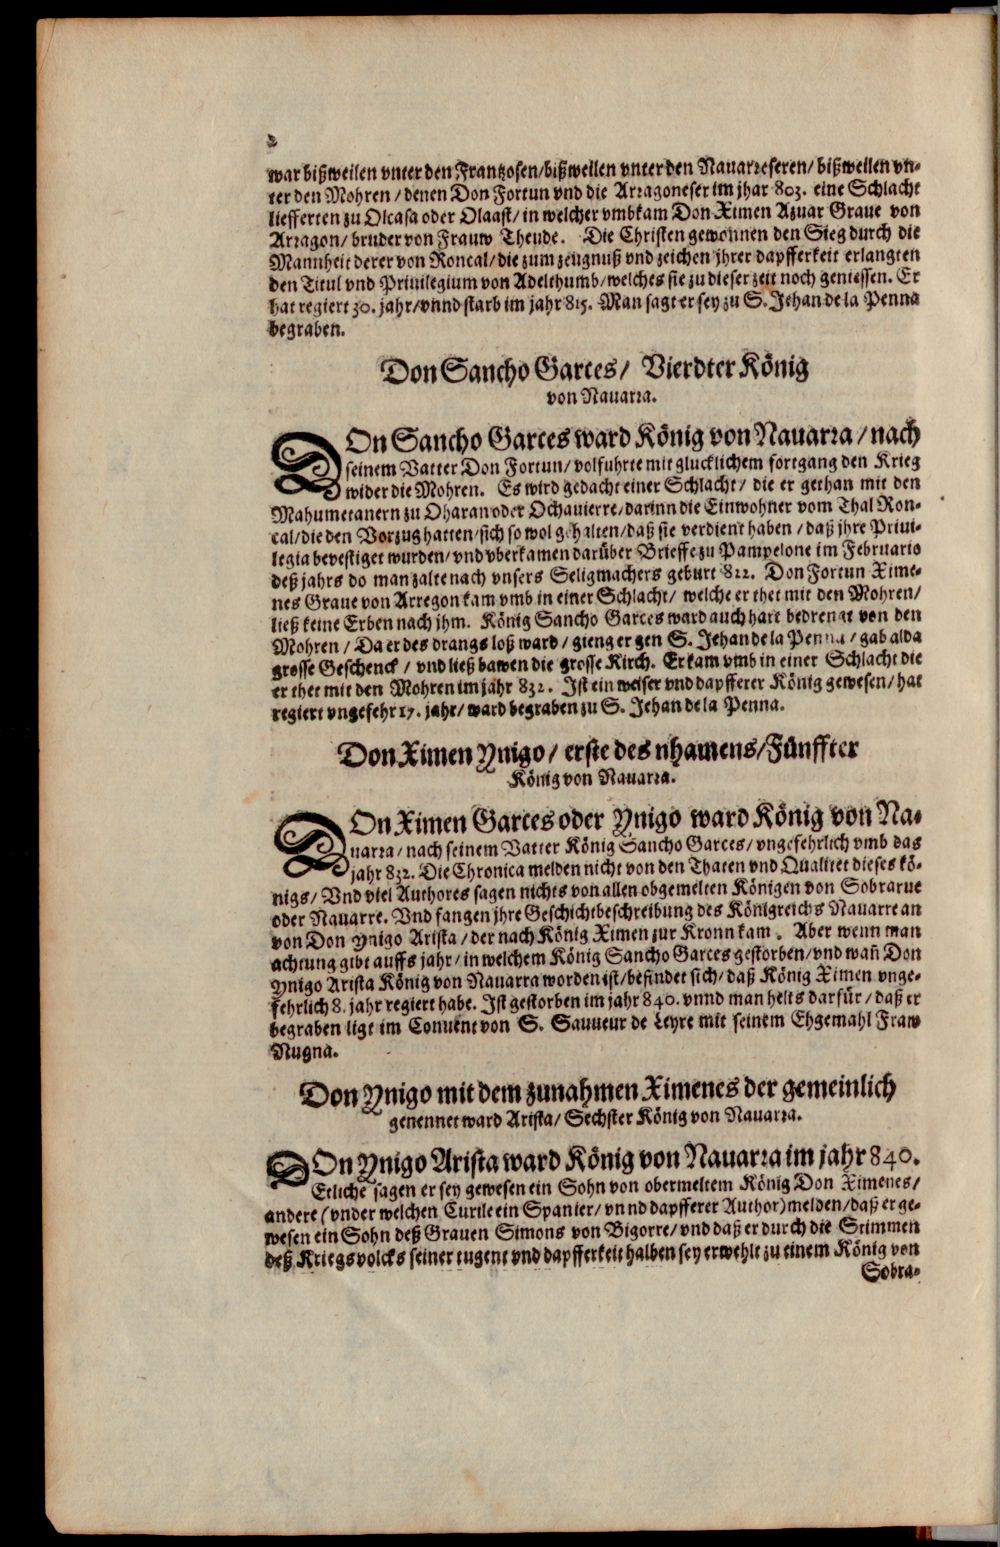 2
war bißweilen vnter den Frantzosen/bißweilen vnter den Nauarreseren/bißweilen vn-
ter den Mohren/denen Don Fortun vnd die Arragoneser im jhar 803. eine Schlacht
liefferten zu Olcasa oder Olaast/in welcher vmbkam Don Ximen Azuar Graue von
Arragon/bruder von Frauw Theude. Die Christen gewonnen den Sieg durch die
Mannheit derer von Roncal/die zum zeugnuß vnd zeichen jhrer dapfferkeit erlangten
den Titul vnd Priuilegium von Adelthumb/welches sie zu dieser zeit noch geniessen. Er
hat regiert 30. jahr/vnnd starb im jahr 815. Man sagt er sey zu S. Jehan de la Penna
begraben.
Don Sancho Garces/ Vierdter König
von Nauarra.
DOn Sancho Garces ward König von Nauarra/nach
seinem Vatter Don Fortun/volfuhrte mit glucklichem fortgang den Krieg
wider die Mohren. Es wird gedacht einer Schlacht/ die er gethan mit den
Mahumetanern zu Oharan oder Ochauierre/darinn die Einwohner vom Thal Ron-
cal/die den Vorzug hatten/sich so wol gehalten/daß sie verdient haben/daß jhre Priui-
legia bevestiget wurden/vnd vberkamen darüber Brieffe zu Pampelone im Februario
deß jahrs do man zalte nach vnsers Seligmachers geburt 822. Don Fortun Xime-
nes Graue von Arregon kam vmb in einer Schlacht/ welche er thet mit den Mohren/
ließ keine Erben nach jhm. König Sancho Garces ward auch hart bedrengt von den
Mohren/ Da er des drangs loß ward/ gieng er gen S. Jehan de la Penna/gab alda
grosse Geschenck/ vnd ließ bawen die grosse Kirch. Er kam vmb in einer Schlacht die
er thet mit den Mohren im jahr 832. Ist ein weiser vnd dapfferer König gewesen/hat
regiert vngefehr 17. jahr/ward begraben zu S. Jehan de la Penna.
Don Ximen Ynigo/ erste des nhamens/Fünffter
König von Nauarra.
DOn Ximen Garces oder Ynigo ward König von Na-
uarra/nach seinem Vatter König Sancho Garces/vngefehrlich vmb das
jahr 832. Die Chronica melden nicht von den Thaten vnd Qualitet dieses kö-
nigs/Vnd viel Authores sagen nichts von allen obgemelten Königen von Sobrarue
oder Nauarre. Vnd fangen jhre Geschichtbeschreibung des Königreichs Nauarre an
von Don Ynigo Arista/der nach König Ximen zur Kronn kam. Aber wenn man
achtung gibt auffs jahr/in welchem König Sancho Garces gestorben/vnd wañ Don
Ynigo Arista König von Nauarra worden ist/befindet sich/daß König Ximen vnge-
fehrlich 8. jahr regiert habe. Ist gestorben im jahr 840. vnnd man helts darfür/daß er
begraben ligt im Conuent von S. Sauueur de Leyre mit seinem Ehgemahl Fraw
Nugna.
Don Ynigo mit dem zunahmen Ximenes der gemeinlich
genennet ward Arista/Sechster König von Nauarra.
DOn Ynigo Arista ward König von Nauarra im jahr 840.
Etliche sagen er sey gewesen ein Sohn von obermeltem König Don Ximenes/
andere (vnder welchen Curile ein Spanier/vnnd dapfferer Author) melden/daß er ge-
wesen ein Sohn deß Grauen Simons von Bigorre/vnd daß er durch die Stimmen
deß Kriegsvolcks seiner tugent vnd dapfferkeit halben sey erwehlt zu einem König von
Sobra-